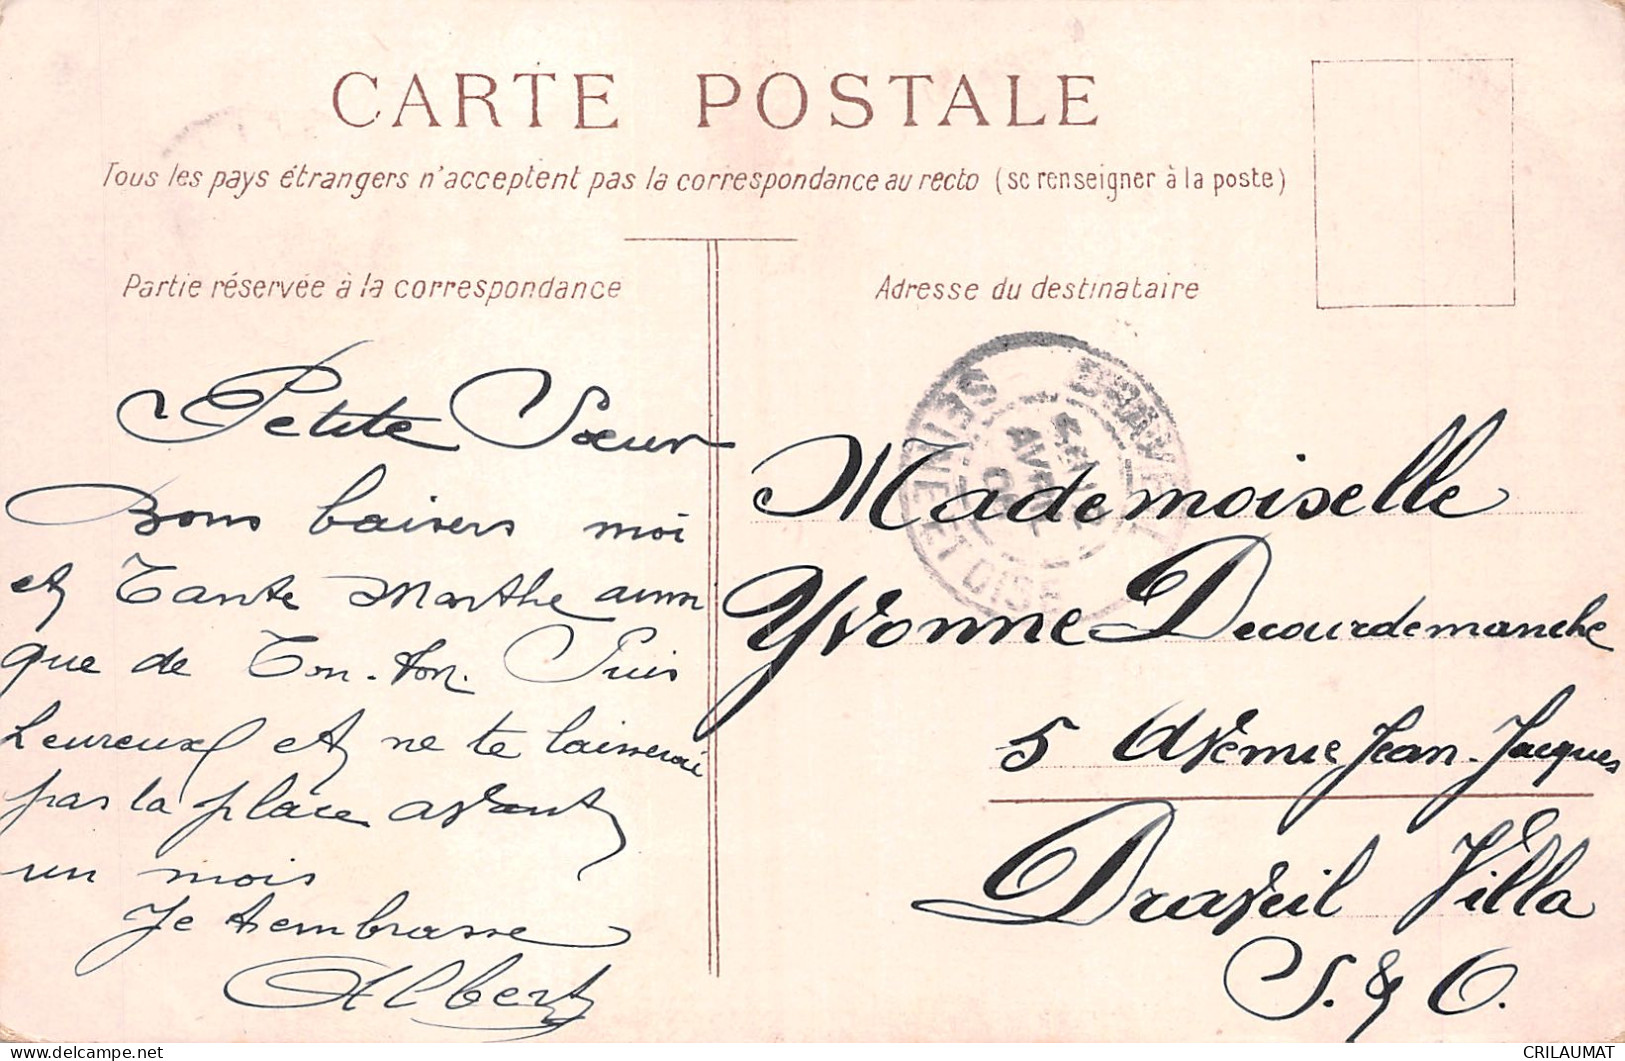 CARTE POSTALE
Tous les pays étrangers n'acceptent pas la correspondance au recto (se renseigner à la poste)
Partie réservée à la correspondance
Adresse du destinataire
Petite Sœur
Bons baisers moi
et Tante Marthe ainsi
que de Ton-ton. Suis
heureux et ne te laisserai
pas la place avant
un mois
Je t'embrasse
Albert
SEINE ET OISE
DRAVEIL
AVRIL
Mademoiselle
Yvonne Decourdemanche
5 Avenue Jean-Jacques
Draveil Villa
S. & O.
CRILAUMAT